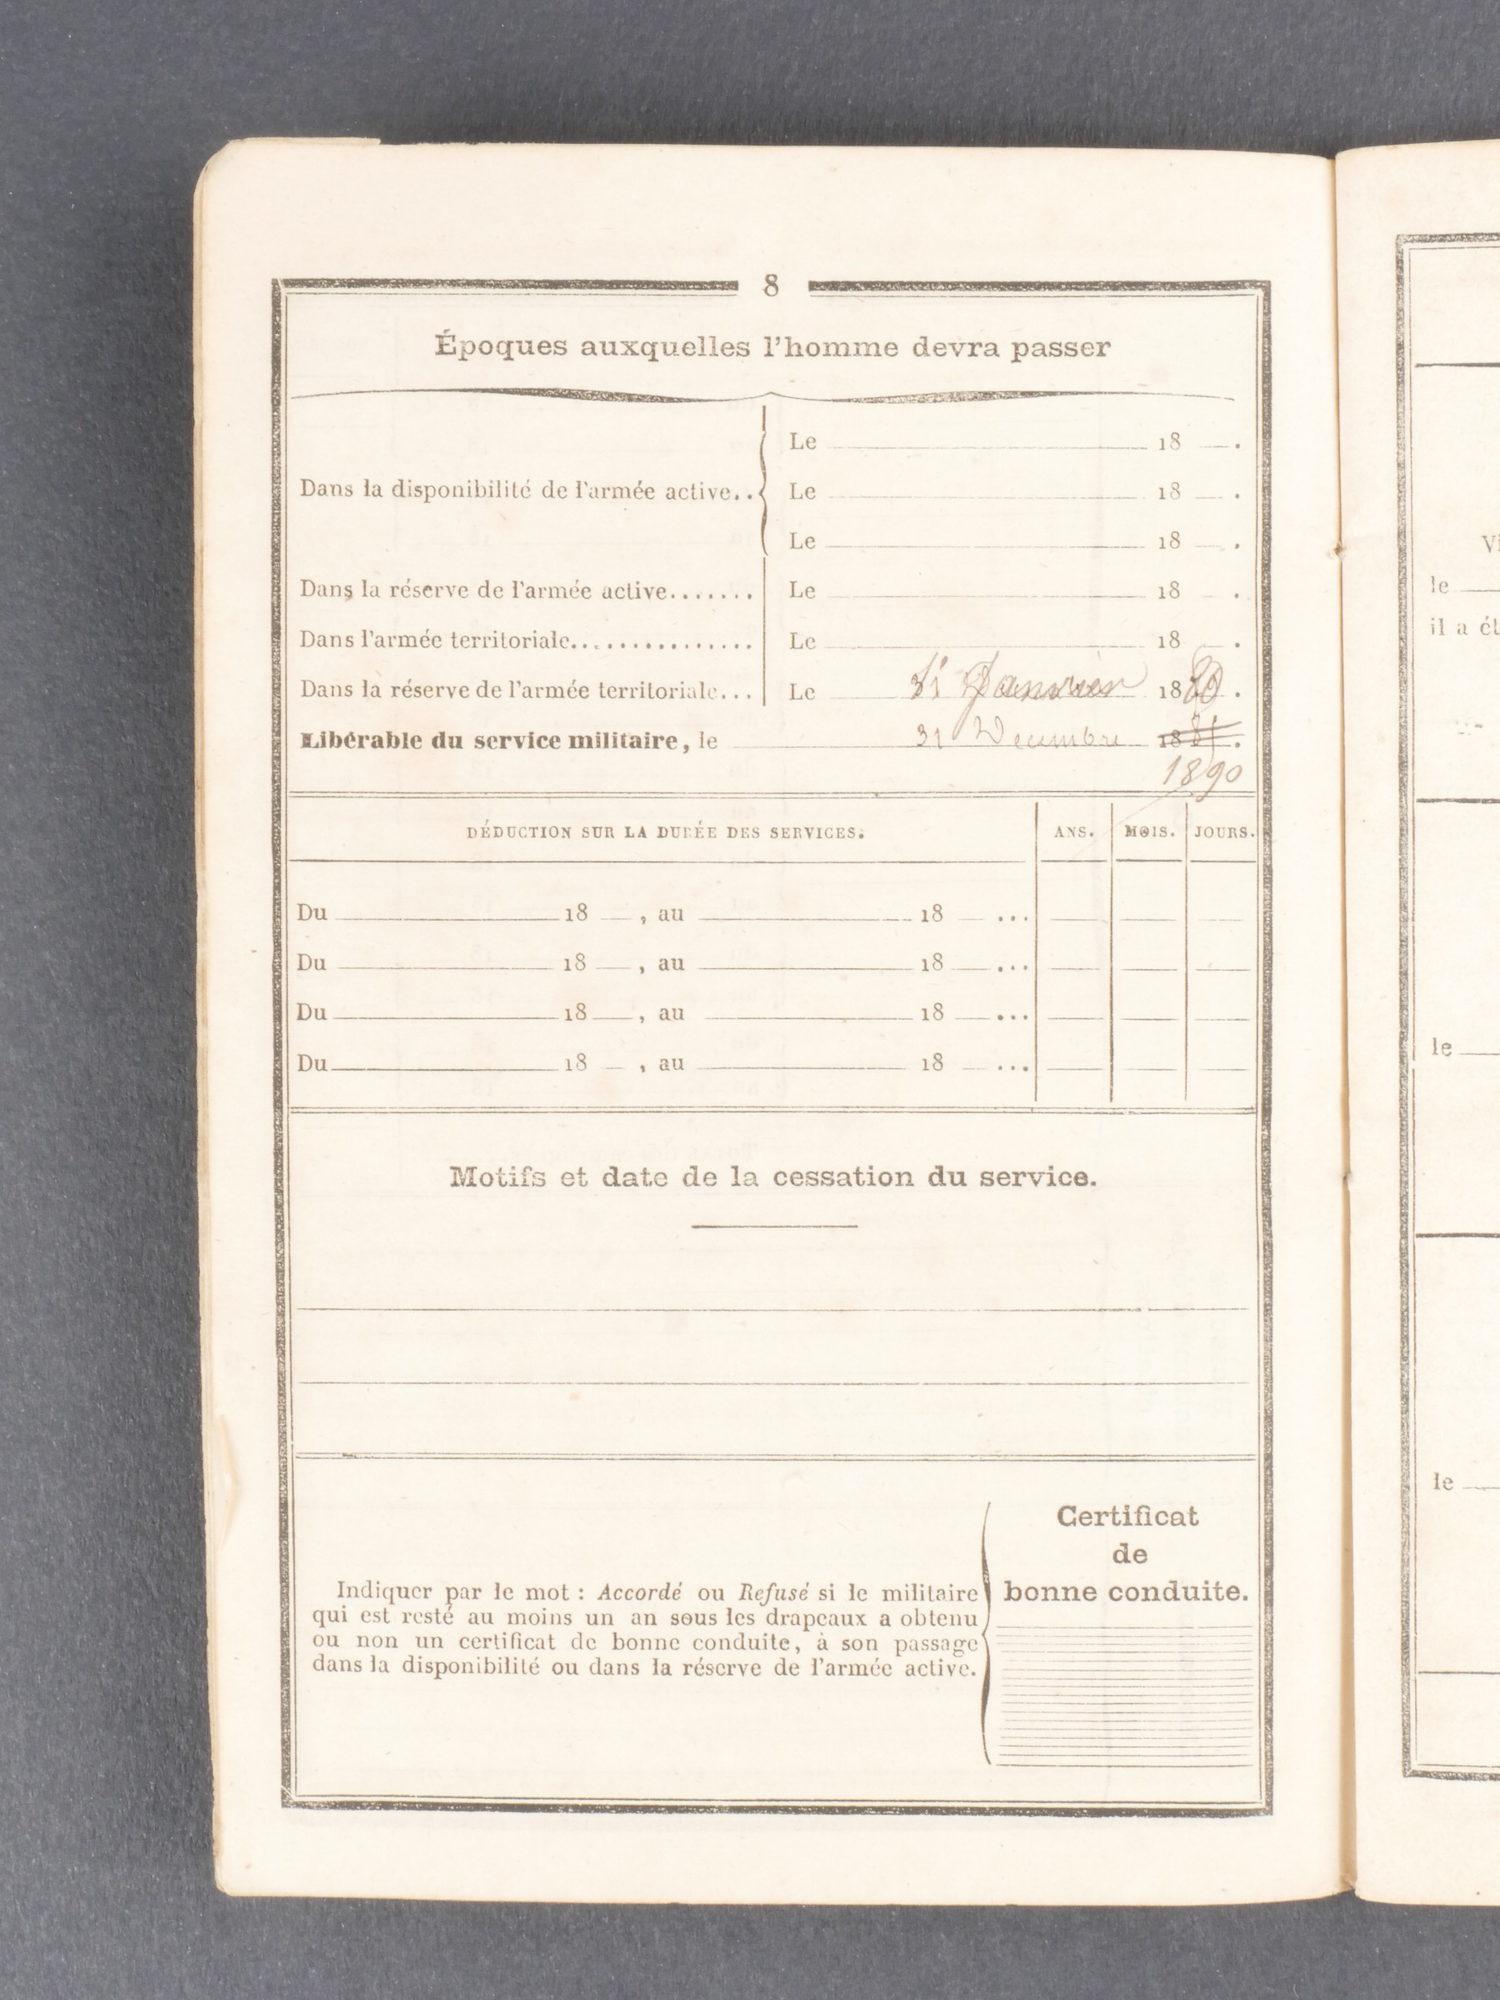 8
Époques auxquelles l'homme devra passer
Le 18 .
Dans la disponibilité de l'armée active.. Le 18 .
Le 18 .
Dans la réserve de l'armée active....... Le 18 .
Dans l'armée territoriale............... Le 18 .
Dans la réserve de l'armée territoriale... Le Janvier 18 .
Libérable du service militaire, le 31 Decembre 18 .
1890
DÉDUCTION SUR LA DURÉE DES SERVICES. ANS. MOIS. JOURS.
Du 18 , au 18 ...
Du 18 , au 18 ...
Du 18 , au 18 ...
Du 18 , au 18 ...
Motifs et date de la cessation du service.
Certificat
de
bonne conduite.
Indiquer par le mot : Accordé ou Refusé si le militaire
qui est resté au moins un an sous les drapeaux a obtenu
ou non un certificat de bonne conduite, à son passage
dans la disponibilité ou dans la réserve de l'armée active.
le
il a
le
le